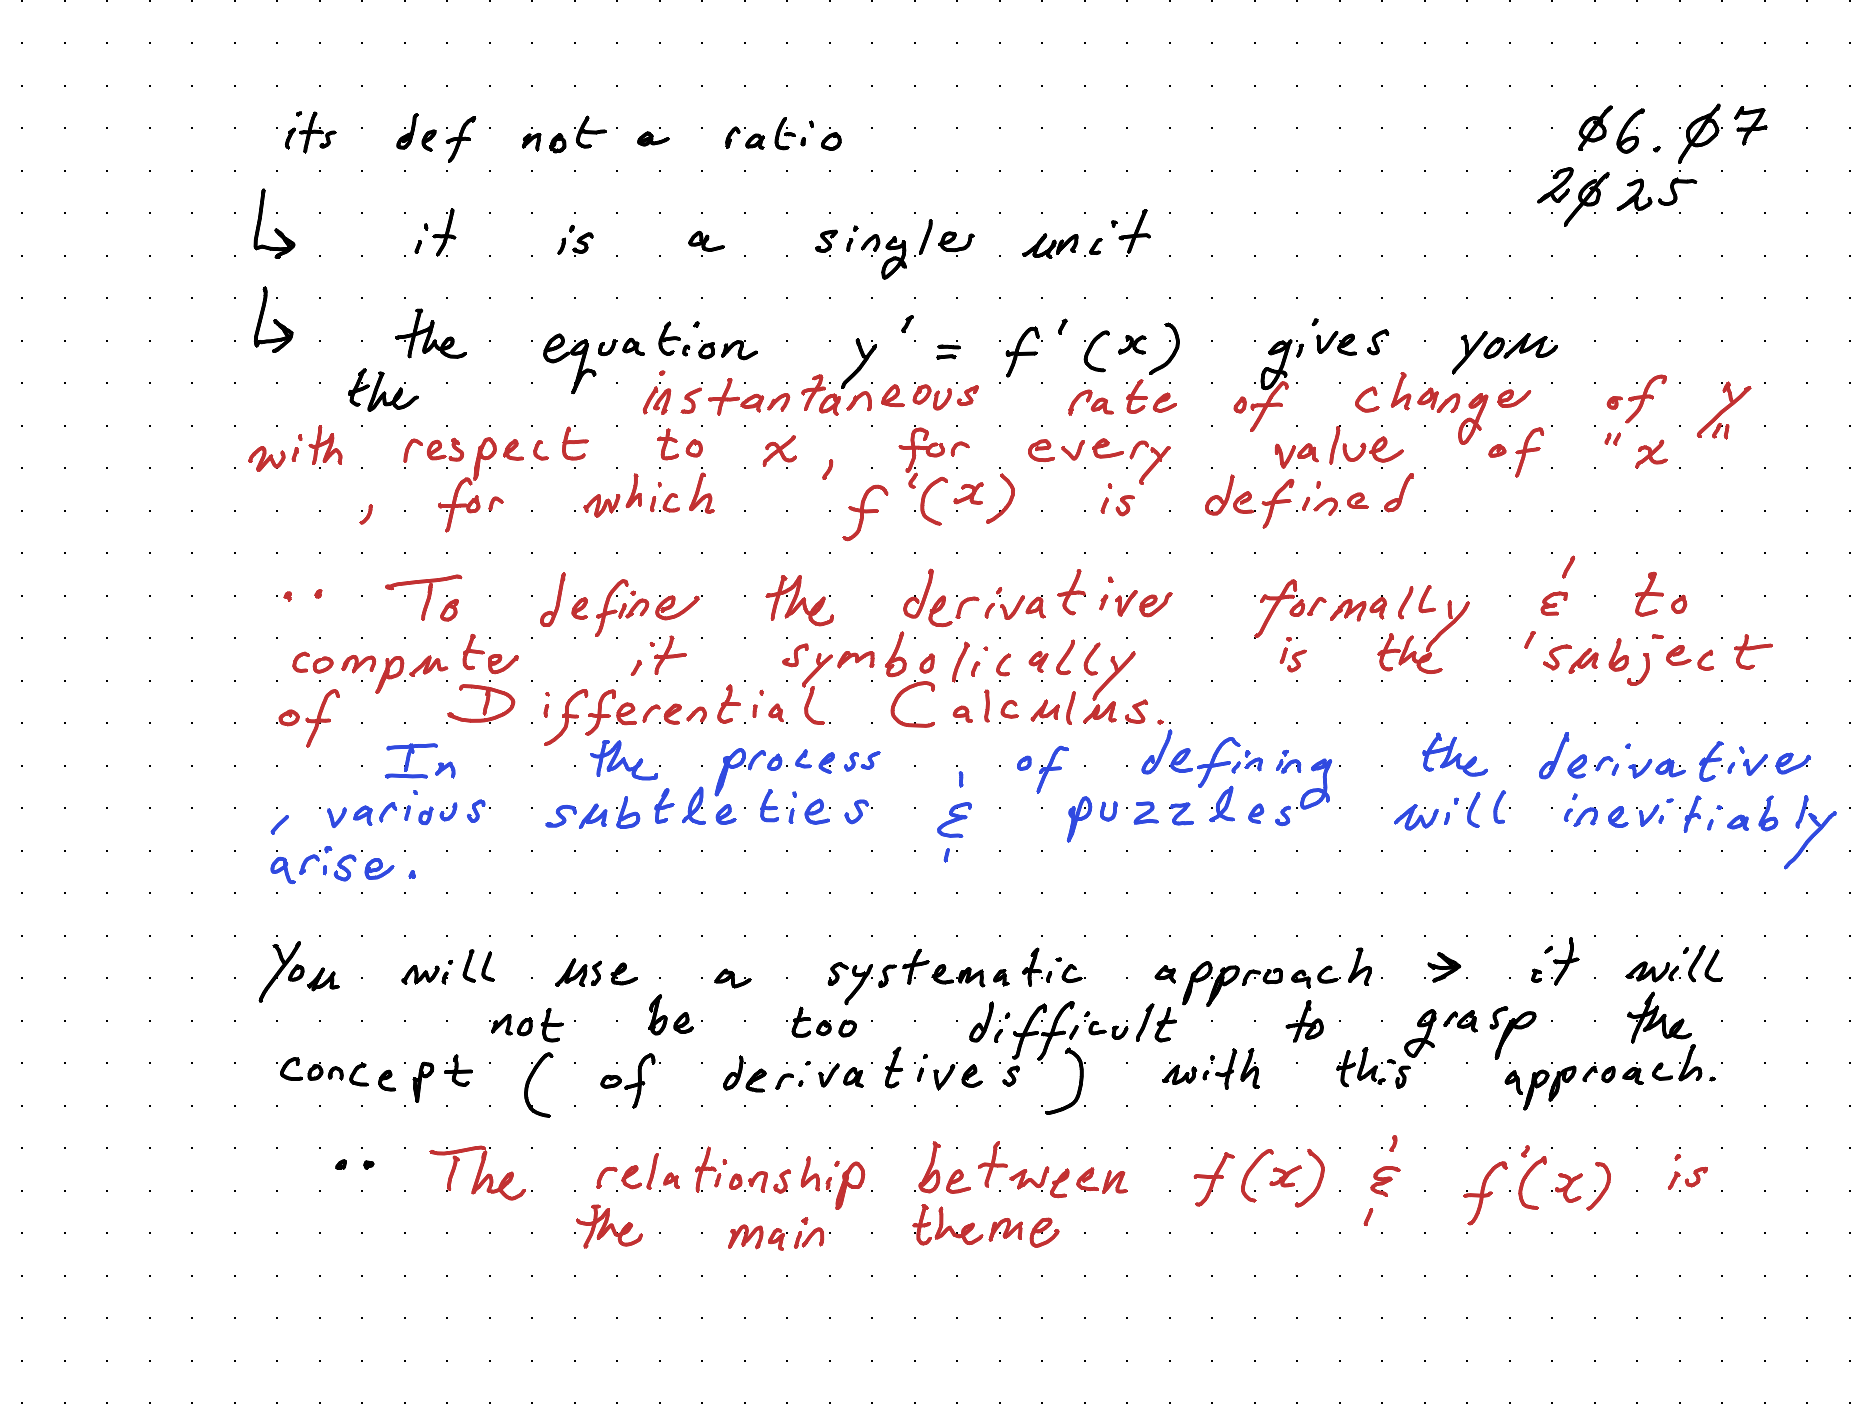 its def not a ratio
Ø6.Ø7
2Ø25
↳ it is a singles unit
↳ the equation y' = f'(x) gives you
the instantaneous rate of change of y
with respect to x, for every value of "x"
, for which f'(x) is defined
·· To define the derivative formally & to
compute it symbolically is the 'subject
of Differential Calculus.
In the process of defining the derivative
, various subtleties & puzzles will inevitiably
arise.
You will use a systematic approach → it will
not be too difficult to grasp the
concept (of derivatives) with this approach.
·· The relationship between f(x) & f'(x) is
the main theme